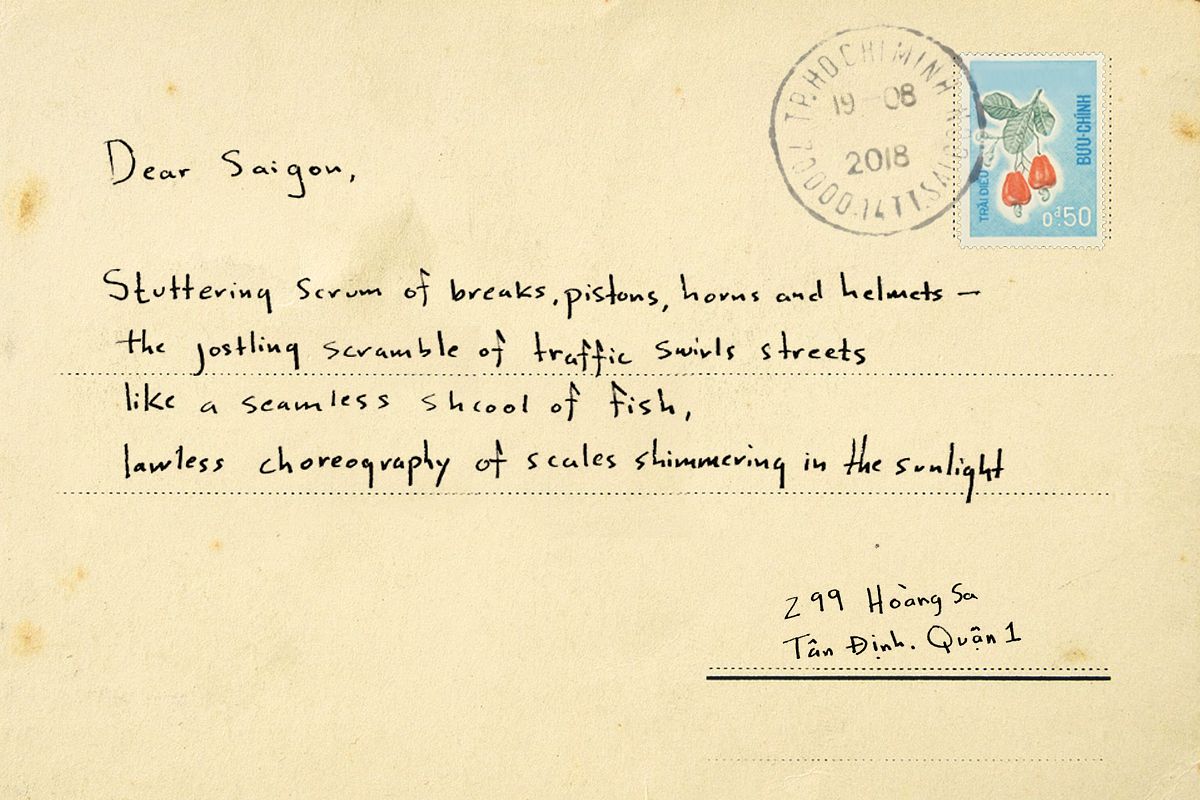 TP.HO CHI MINH
19-08
2018
700000.14TT.SAIGON
BƯU-CHÍNH
TRÁI ĐIỀU
0đ.50
Dear Saigon,
Stuttering scrum of breaks, pistons, horns and helmets —
the jostling scramble of traffic swirls streets
like a seamless shcool of fish,
lawless choreography of scales shimmering in the sunlight
299 Hoàng Sa
Tân Định. Quận 1